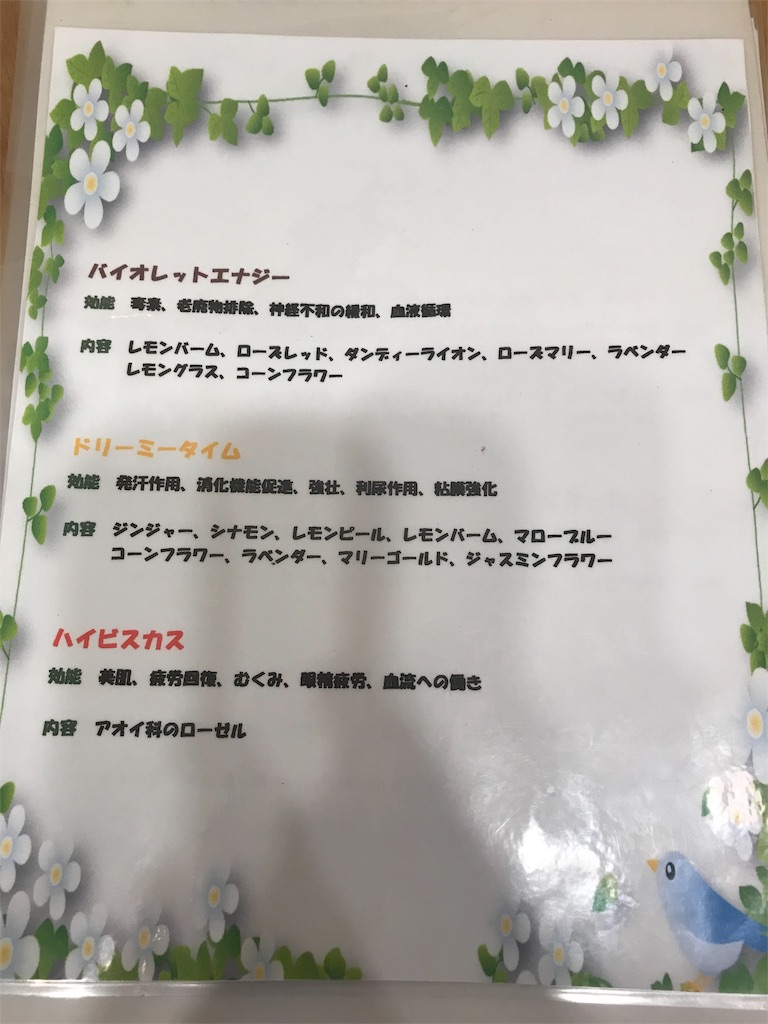 バイオレットエナジー
効能 毒素、老廃物排除、神経不和の緩和、血液循環
内容 レモンバーム、ローズレッド、ダンディーライオン、ローズマリー、ラベンダー
レモングラス、コーンフラワー
ドリーミータイム
効能 発汗作用、消化機能促進、強壮、利尿作用、粘膜強化
内容 ジンジャー、シナモン、レモンピール、レモンバーム、マローブルー
コーンフラワー、ラベンダー、マリーゴールド、ジャスミンフラワー
ハイビスカス
効能 美肌、疲労回復、むくみ、眼精疲労、血流への働き
内容 アオイ科のローゼル